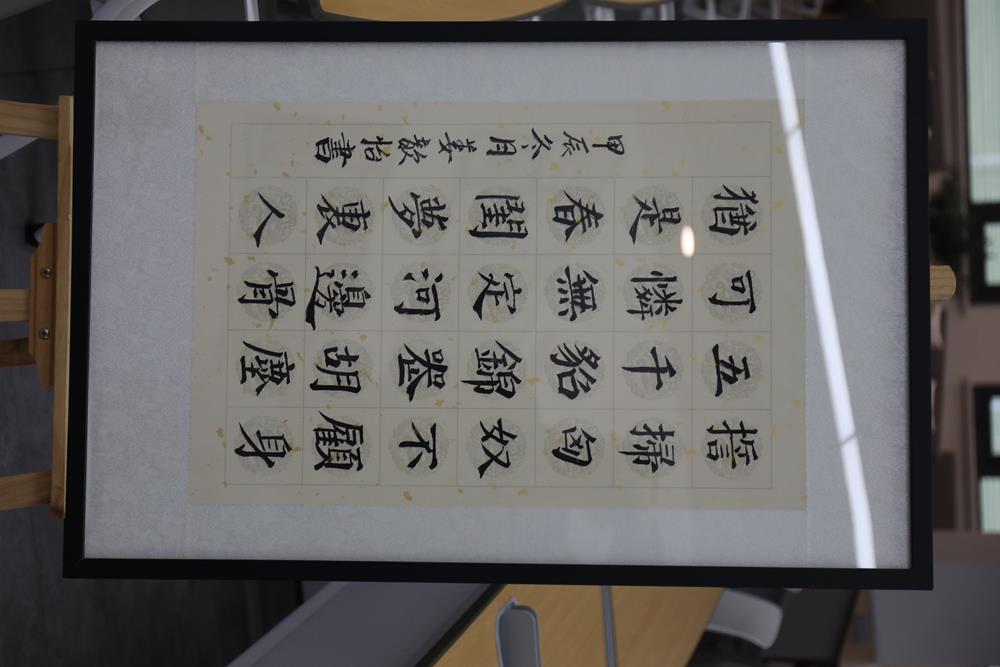 誓掃匈奴不顧身
五千貂錦喪胡塵
可憐無定河邊骨
猶是春閨夢裏人
甲辰冬月姜歆怡書